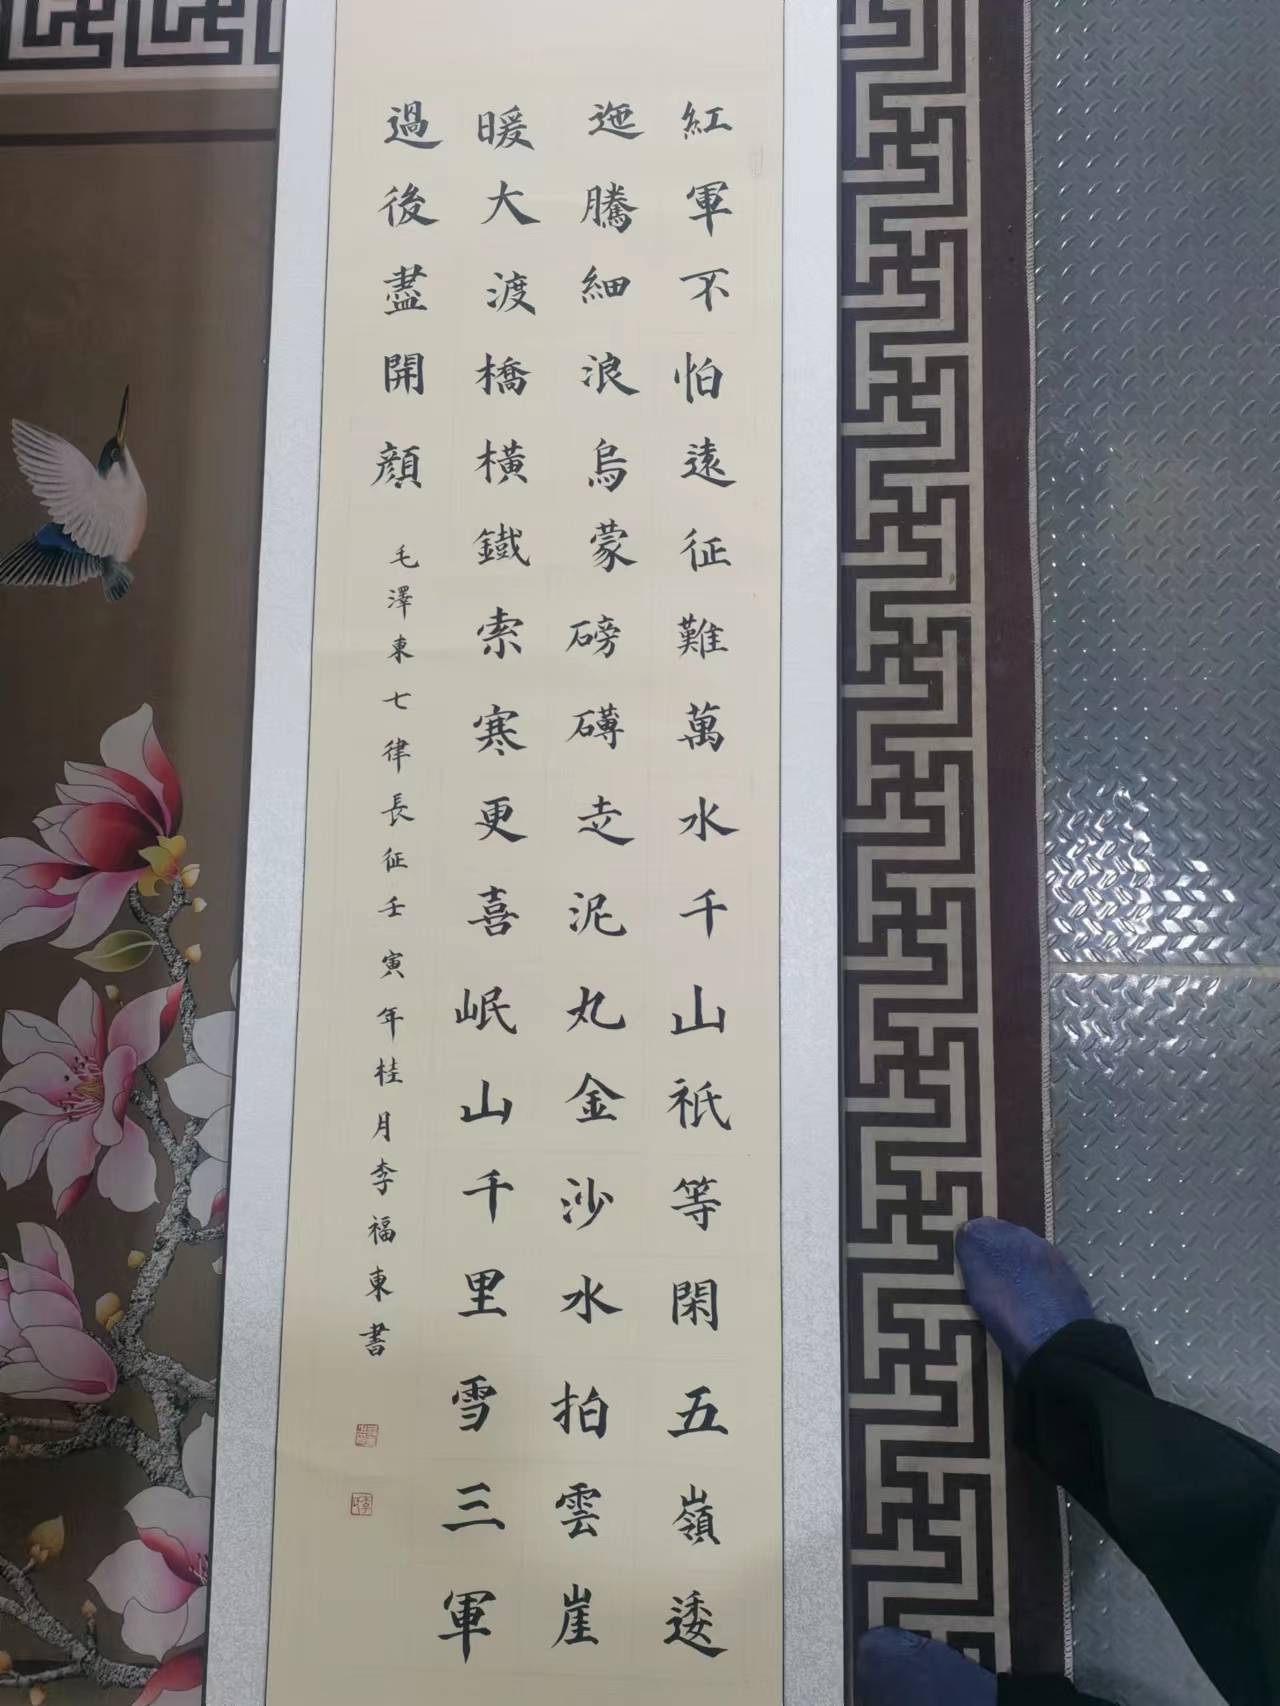 紅軍不怕遠征難萬水千山衹等閑五嶺逶
迤騰細浪烏蒙磅礴走泥丸金沙水拍雲崖
暖大渡橋橫鐵索寒更喜岷山千里雪三軍
過後盡開顏
毛澤東七律長征壬寅年桂月李福東書